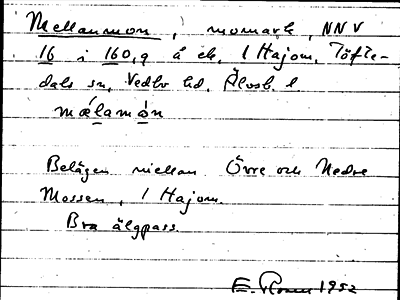 Mellanmon, momark, NNV
16 i 160,9 å ek. 1 Hajom. Töfte-
dals sn, Vedbo hd, Älvsb. l
mǽlamón
Belägen mellan Övre och Nedre
Mossen, 1 Hajom.
Bra älgpass.
E. 1952